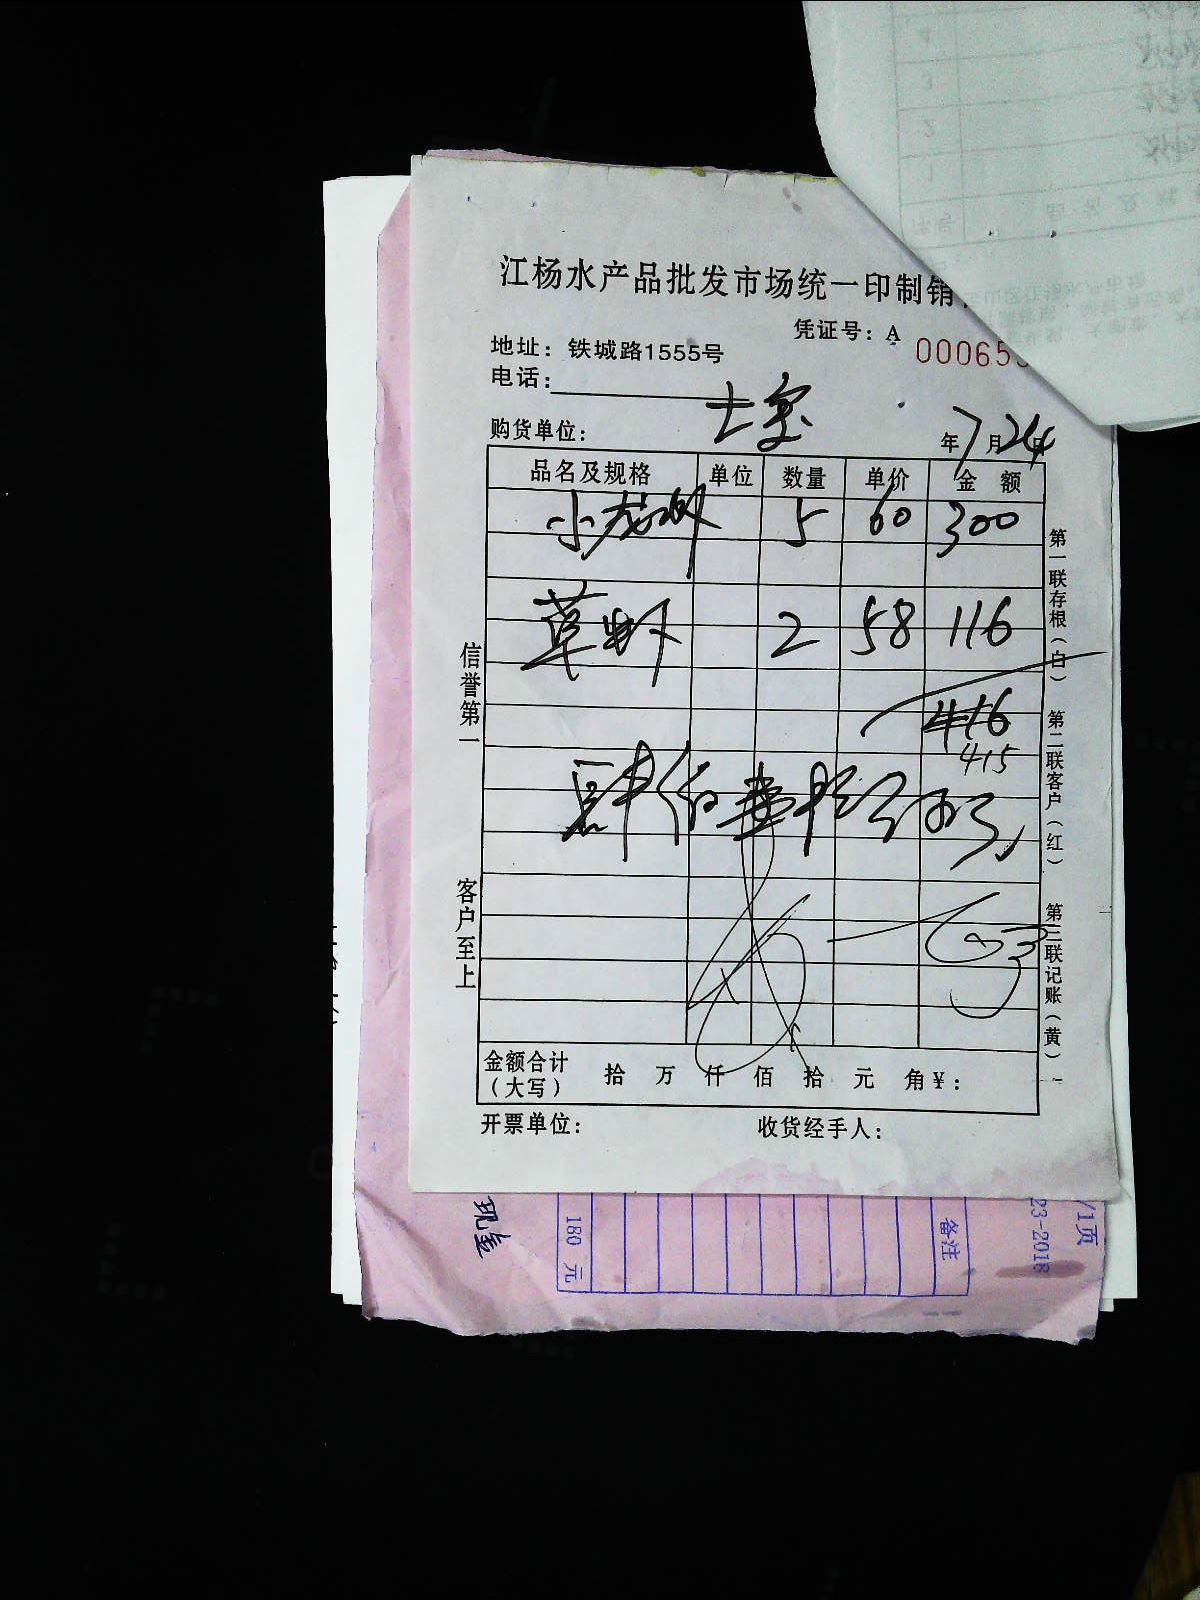 江杨水产品批发市场统一印制销
凭证号：A 00065
地址：铁城路1555号
电话：
购货单位： 年7月24日
品名及规格 单位 数量 单价 金额
小龙虾 5 60 300
草虾 2 58 116
416
415
肆佰壹拾
金额合计（大写） 拾 万 仟 佰 拾 元 角￥：
开票单位： 收货经手人：
信誉第一 客户至上
第一联存根（白） 第二联客户（红） 第三联记账（黄）
现金
180 元
备注
23-2018
/1页
4
3
2
1
序号